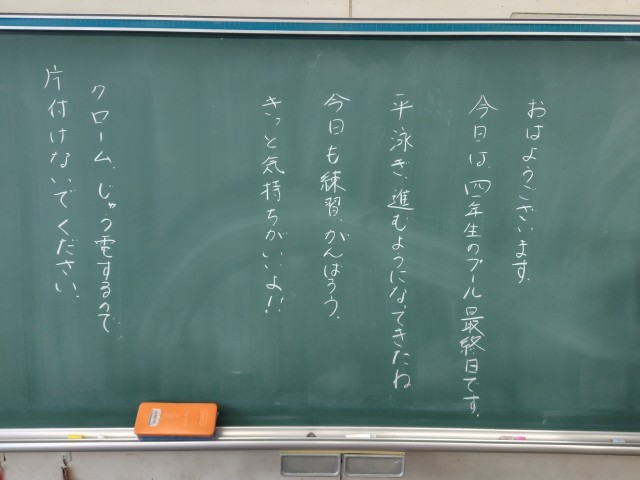 おはようございます。
今日は、四年生のプール最終日です。
平泳ぎ、進むようになってきたね
今日も練習、がんばろう。
きっと気持ちがいいよ!!
クローム、じゅう電するので、
片付けないでください。